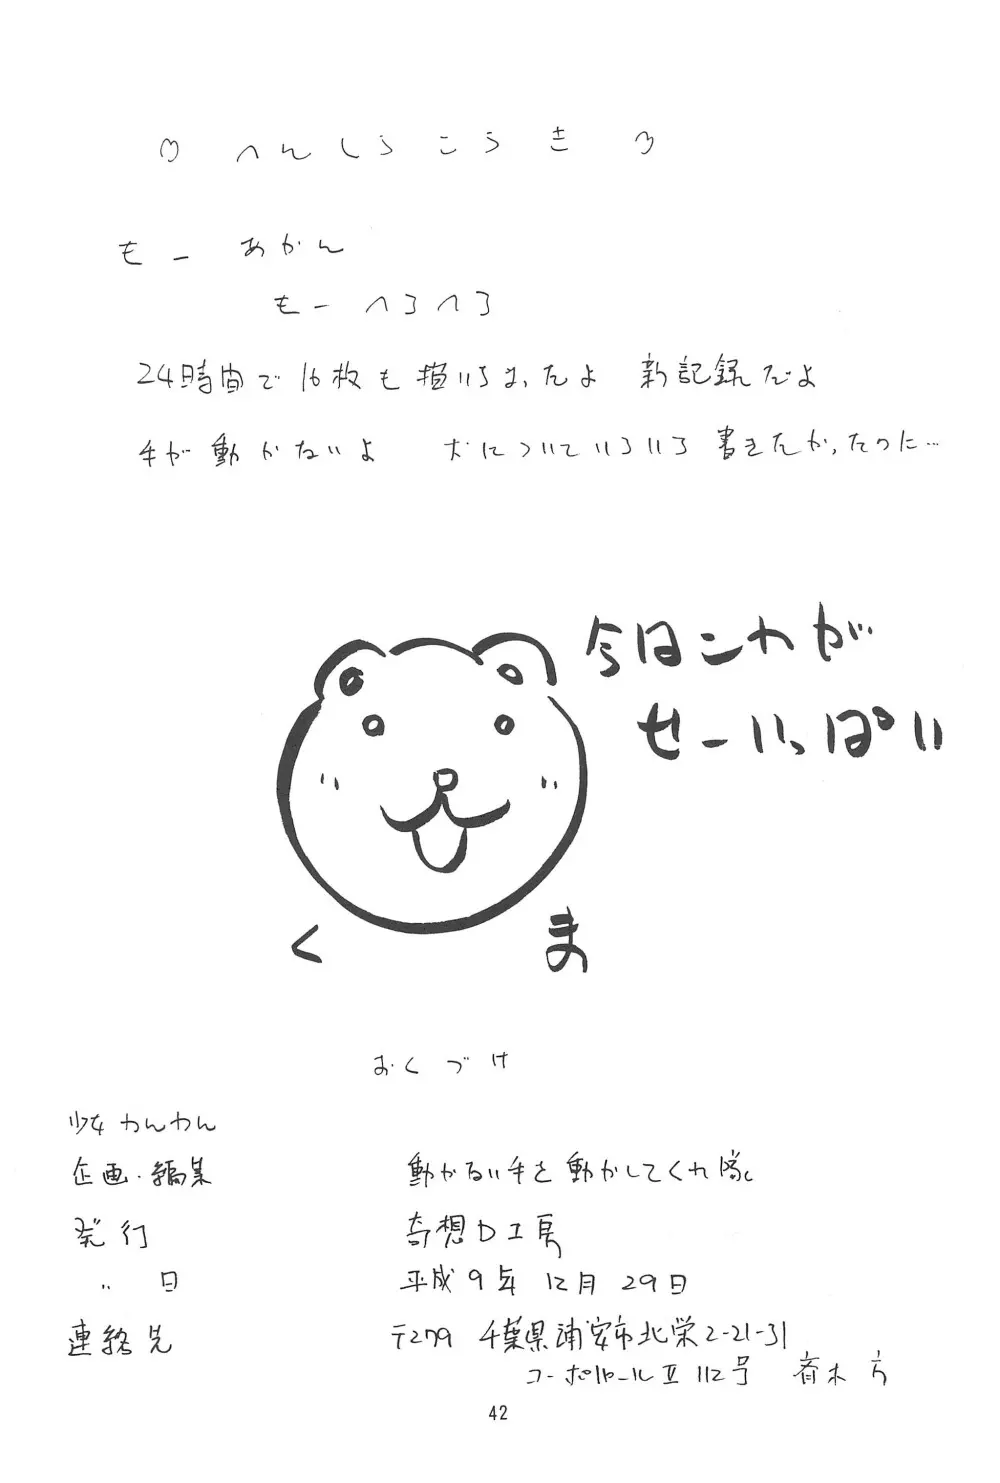 ♡ へんしうこうき ♡
もー あかん
もー へろへろ
24時間で16枚も描いちまったよ 新記録だよ
手が動かないよ 犬についていろいろ書きたかったのに…
今はこれが
せーいっぱい
く ま
おくづけ
少女わんわん
企画・編集 動かない手を動かしてくれ隊
発行 奇想D工房
〃 日 平成9年12月29日
連絡先 〒279 千葉県浦安市北栄2-21-31
Ⅱ 112号 青木方
42